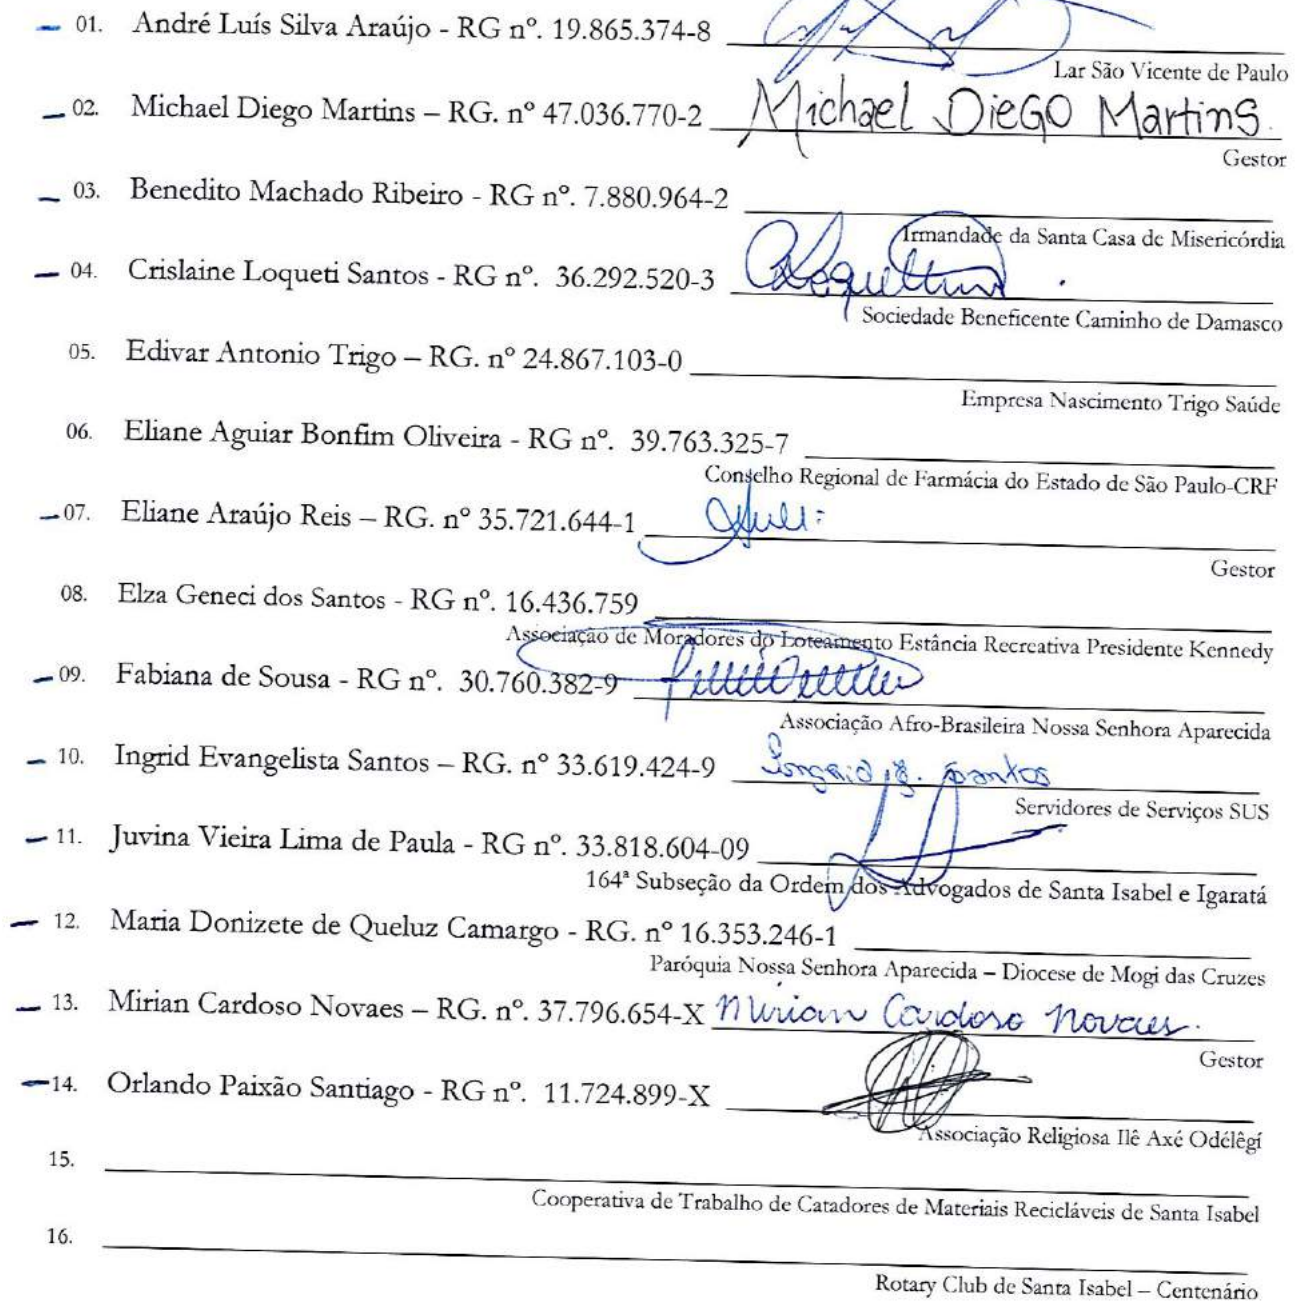 01. André Luís Silva Araújo - RG nº. 19.865.374-8
Lar São Vicente de Paulo
02. Michael Diego Martins – RG. nº 47.036.770-2 Michael Diego Martins.
Gestor
03. Benedito Machado Ribeiro - RG nº. 7.880.964-2
Irmandade da Santa Casa de Misericórdia
04. Crislaine Loqueti Santos - RG nº. 36.292.520-3
Sociedade Beneficente Caminho de Damasco
05. Edivar Antonio Trigo – RG. nº 24.867.103-0
Empresa Nascimento Trigo Saúde
06. Eliane Aguiar Bonfim Oliveira - RG nº. 39.763.325-7
Conselho Regional de Farmácia do Estado de São Paulo-CRF
07. Eliane Araújo Reis – RG. nº 35.721.644-1
Gestor
08. Elza Geneci dos Santos - RG nº. 16.436.759
Associação de Moradores do Loteamento Estância Recreativa Presidente Kennedy
09. Fabiana de Sousa - RG nº. 30.760.382-9
Associação Afro-Brasileira Nossa Senhora Aparecida
10. Ingrid Evangelista Santos – RG. nº 33.619.424-9 Ingrid E. Santos
Servidores de Serviços SUS
11. Juvina Vieira Lima de Paula - RG nº. 33.818.604-09
164ª Subseção da Ordem dos Advogados de Santa Isabel e Igaratá
12. Maria Donizete de Queluz Camargo - RG. nº 16.353.246-1
Paróquia Nossa Senhora Aparecida – Diocese de Mogi das Cruzes
13. Mirian Cardoso Novaes – RG. nº. 37.796.654-X Mirian Cardoso Novaes.
Gestor
14. Orlando Paixão Santiago - RG nº. 11.724.899-X
Associação Religiosa Ilê Axé Odélêgí
15.
Cooperativa de Trabalho de Catadores de Materiais Recicláveis de Santa Isabel
16.
Rotary Club de Santa Isabel – Centenário